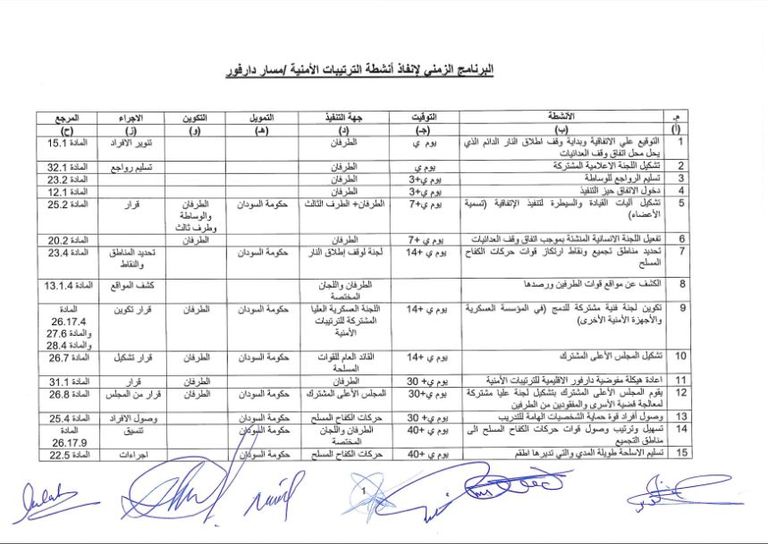 البرنامج الزمني لإنفاذ أنشطة الترتيبات الأمنية /مسار دارفور
م. الأنشطة التوقيت جهة التنفيذ التمويل التكوين الاجراء المرجع
(أ) (ب) (جـ) (د) (هـ) (و) (ز) (ح)
1 التوقيع علي الاتفاقية وبداية وقف اطلاق النار الدائم الذي يوم ي الطرفان تنوير الافراد المادة 15.1
يحل محل اتفاق وقف العدائيات
2 تشكيل اللجنة الاعلامية المشتركة يوم ي الطرفان تسليم رواجع المادة 32.1
3 تسليم الرواجع للوساطة يوم ي+3 الطرفان المادة 23.2
4 دخول الاتفاق حيز التنفيذ يوم ي+3 الطرفان المادة 12.1
5 تشكيل آليات القيادة والسيطرة لتنفيذ الإتفاقية (تسمية يوم ي+7 الطرفان+ الطرف الثالث حكومة السودان الطرفان قرار المادة 25.2
الأعضاء) والوساطة
وطرف ثالث
6 تفعيل اللجنة الانسانية المنشئة بموجب اتفاق وقف العدائيات يوم ي +7 الطرفان الطرفان المادة 20.2
7 تحديد مناطق تجميع ونقاط ارتكاز قوات حركات الكفاح يوم ي +14 لجنة لوقف إطلاق النار حكومة السودان تحديد المناطق المادة 23.4
المسلح والنقاط
8 الكشف عن مواقع قوات الطرفين ورصدها الطرفان واللجان كشف المواقع المادة 13.1.4
المختصة
9 تكوين لجنة فنية مشتركة للدمج (في المؤسسة العسكرية يوم ي +14 اللجنة العسكرية العليا حكومة السودان الطرفان قرار تكوين المادة
والأجهزة الأمنية الأخرى) المشتركة للترتيبات 26.17.4
الأمنية والمادة 27.6
والمادة 28.4
10 تشكيل المجلس الأعلى المشترك يوم ي +14 القائد العام للقوات حكومة السودان الطرفان قرار تشكيل المادة 26.7
المسلحة
11 اعادة هيكلة مفوضية دارفور الاقليمية للترتيبات الأمنية يوم ي+ 30 الطرفان الطرفان قرار المادة 31.1
12 يقوم المجلس الأعلى المشترك بتشكيل لجنة عليا مشتركة يوم ي+30 المجلس الأعلى المشترك حكومة السودان الطرفان قرار من المجلس المادة 26.8
لمعالجة قضية الأسرى والمفقودين من الطرفين
13 وصول أفراد قوة حماية الشخصيات الهامة للتدريب يوم ي+ 30 حركات الكفاح المسلح حكومة السودان وصول الافراد المادة 25.4
14 تسهيل وترتيب وصول قوات حركات الكفاح المسلح الى يوم ي +40 الطرفان واللجان حكومة السودان تنسيق المادة
مناطق التجميع المختصة 26.17.9
15 تسليم الاسلحة طويلة المدي والتي تديرها اطقم يوم ي +40 حركات الكفاح المسلح حكومة السودان اجراءات المادة 22.5
1